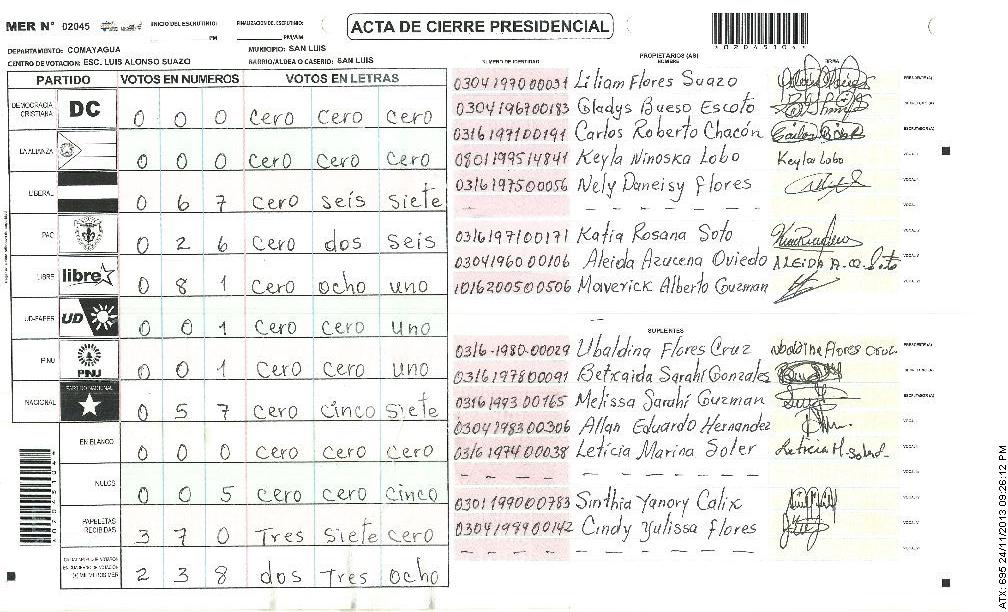 MER N° 02045
INICIO DEL ESCRUTINIO: PM
FINALIZACION DEL ESCRUTINIO: PM/AM
ACTA DE CIERRE PRESIDENCIAL
DEPARTAMENTO: COMAYAGUA
MUNICIPIO: SAN LUIS
CENTRO DE VOTACION: ESC. LUIS ALONSO SUAZO
BARRIO/ALDEA O CASERIO: SAN LUIS
PARTIDO VOTOS EN NUMEROS VOTOS EN LETRAS
DEMOCRACIA CRISTIANA DC 0 0 0 cero cero cero
LA ALIANZA 0 0 0 cero cero cero
LIBERAL 0 6 7 cero seis siete
PAC 0 2 6 cero dos seis
LIBRE libre 0 8 1 cero ocho uno
UD-FAPER UD 0 0 1 cero cero uno
PINU PNU 0 0 1 cero cero uno
NACIONAL PARTIDO NACIONAL 0 5 7 cero cinco siete
EN BLANCO 0 0 0 cero cero cero
NULOS 0 0 5 cero cero cinco
PAPELETAS RECIBIDAS 3 7 0 Tres siete cero
2 3 8 dos Tres ocho
PROPIETARIOS (AS)
NUMERO DE IDENTIDAD NOMBRE FIRMA
0304197000031 Liliam Flores Suazo PRESIDENTE(A)
0304196700183 Gladys Bueso Escoto
0316197100191 Carlos Roberto Chacón ESCRUTADOR(A)
0801199514841 Keyla Ninoska Lobo Keyla Lobo VOCAL
0316197500056 Nely Daneisy flores VOCAL
0316197100171 Katia Rosana Soto VOCAL
0304196000106 Aleida Azucena Oviedo VOCAL
1016200500506 Maverick Alberto Guzman VOCAL
SUPLENTES
0316-1980-00029 Ubaldina Flores Cruz Ubaldina Flores Cruz PRESIDENTE(A)
0316197800091 Betzaida Sarahí Gonzales
0316199300165 Melissa Sarahí Guzman ESCRUTADOR(A)
0304198300306 Allan Eduardo Hernandez VOCAL
0316197400038 Leticia Marina Soler VOCAL
0301199000783 Sinthia Yanory Calix VOCAL
0304199900142 Cindy Yulissa flores VOCAL
ATX: 695 24/11/2013 09:26:12 PM